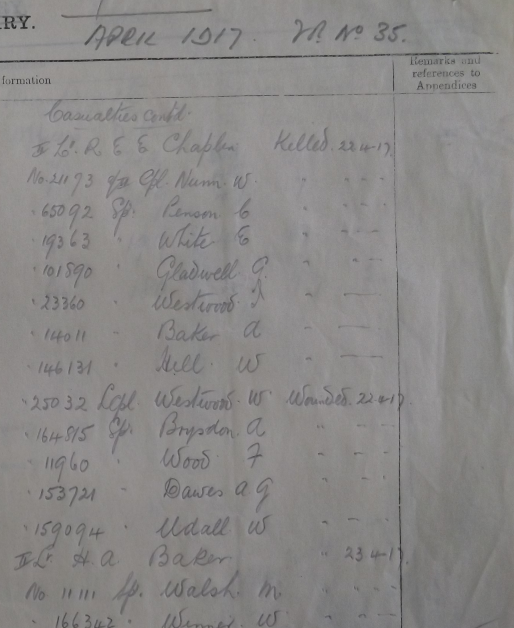 RY.
APRIL 1917. Vol. No 35.
formation
Remarks and
references to
Appendices
Casualties contd.
II Lt. R E E Chaplin Killed. 22-4-17.
No. 21193 Cpl. Nunn W. " " " "
" 65092 Sp. Penson C " " " "
" 19363 " White E " " "
" 101590 " Gladwell G. "
" 23360 " Westwood "
" 14011 " Baker A "
" 146131 " Hill W "
" 25032 Lcpl. Westwood W. Wounded. 22-4-17.
" 164815 Sp. Brysdon A " " "
" 11960 " Wood F " " "
" 153721 " Dawes A G " " "
" 159094 " Udall W " " "
II Lt. H. A. Baker " 23 4-17.
No 11111 Sp. Walsh. M. " " " "
" 166342 " W. " " "